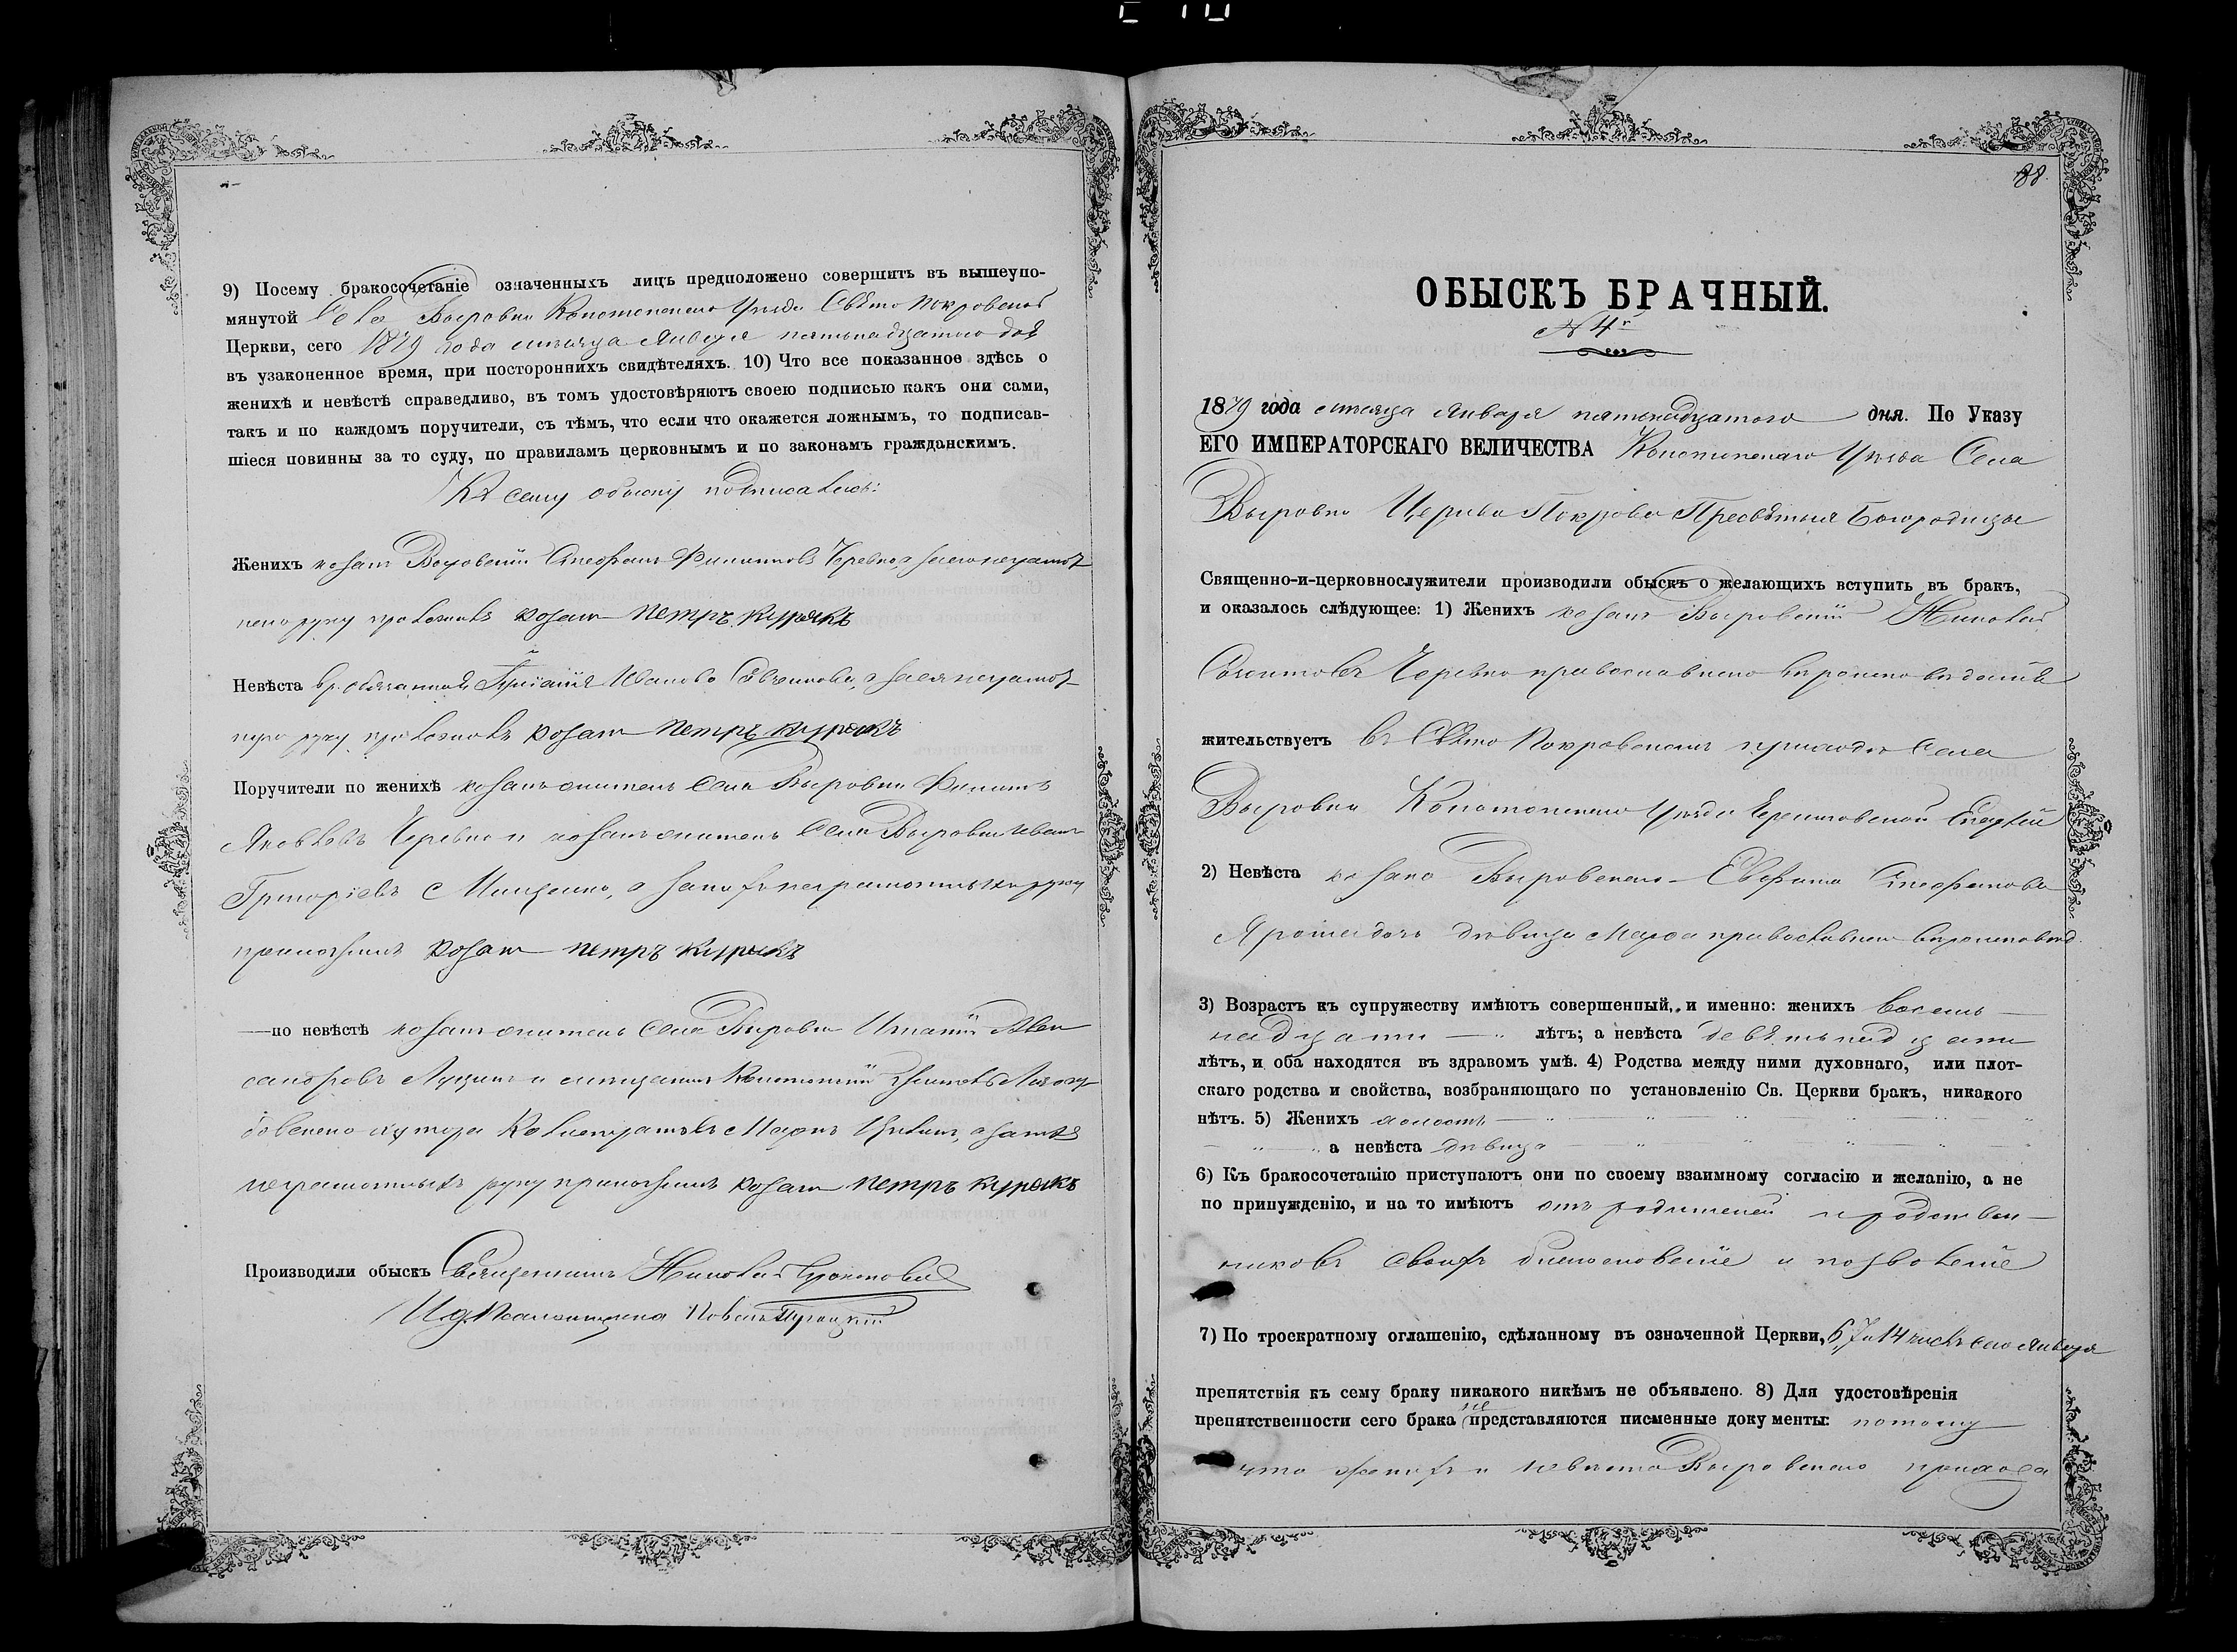 9) Посему бракосочетаніе означенныхъ лицъ предположено совершить въ вышеупо-
мянутой Села Выровки Конотопскаго Уѣзда Свято Покровской
Церкви, сего 1879 года мѣсяца Января пятьнадцатого дня
въ узаконенное время, при постороннихъ свидѣтеляхъ. 10) Что все показанное здѣсь о
женихѣ и невѣстѣ справедливо, въ томъ удостовѣряютъ своею подписью какъ они сами,
такъ и по каждомъ поручители, съ тѣмъ, что если что окажется ложнымъ, то подписав-
шіеся повинны за то суду, по правиламъ церковнымъ и по законамъ гражданскимъ.
Къ сему обыску подписались:
Женихъ козакъ Стефанъ Филиповъ Черевко, а за его неграмот
ного руку приложилъ козакъ Петръ Курякъ
Невѣста Иванова а за ея неграмот
ную руку приложилъ козакъ Петръ Курякъ
Поручители по женихѣ козакъ житель Села Выровки Филипъ
Яковлевъ Черевко и козакъ житель Села Выровки Иванъ
Григоріевъ а за ихъ неграмотныхъ руку
приложилъ козакъ Петръ Курякъ
—по невѣстѣ козакъ житель Села Выровки Игнатій Алек
сандровъ и мѣщанинъ
хутора а за тѣхъ
неграмотныхъ руку приложилъ козакъ Петръ Курякъ
Производили обыскъ Священникъ Николай
И. д. Псаломщика
88.
ОБЫСКЪ БРАЧНЫЙ.
№ 4й
1879 года мѣсяца Января пятьнадцатого дня. По Указу
ЕГО ИМПЕРАТОРСКАГО ВЕЛИЧЕСТВА Конотопскаго Уѣзда Села
Выровки Церкви Покрова Пресвятыя Богородицы
Священно-и-церковнослужители производили обыскъ о желающихъ вступить въ бракъ,
и оказалось слѣдующее: 1) Женихъ козакъ Выровскій Николай
Черевко православного вѣроисповѣданія
жительствуетъ въ Свято Покровскомъ приходѣ Села
Выровки Конотопскаго Уѣзда
2) Невѣста козака Выровского Стефанова
дочь дѣвица Марѳа православного вѣроисповѣд.
3) Возрастъ къ супружеству имѣютъ совершенный, и именно: женихъ восемь
надцати лѣтъ; а невѣста девятьнадцати
лѣтъ, и оба находятся въ здравомъ умѣ. 4) Родства между ними духовнаго, или плот-
скаго родства и свойства, возбраняющаго по установленію Св. Церкви бракъ, никакого
нѣтъ. 5) Женихъ холостъ
а невѣста дѣвица
6) Къ бракосочетанію приступаютъ они по своему взаимному согласію и желанію, а не
по принужденію, и на то имѣютъ отъ родителей и родствен-
никовъ своихъ благословеніе и позволеніе
7) По троекратному оглашенію, сдѣланному въ означенной Церкви, 6, 7 и 14 числъ сего Января
препятствія къ сему браку никакого никѣмъ не объявлено. 8) Для удостовѣренія
препятственности сего брака не представляются писменные документы: потому
что женихъ и невѣста Выровского прихода